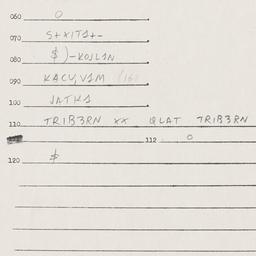 060 O
070 S+XIT1+-
080 $)-KOJL1N
090 KACV,V1M (16)
100 JATK1
110 TRIB3RN XX QLAT TRIB3RN
112 O
120 $